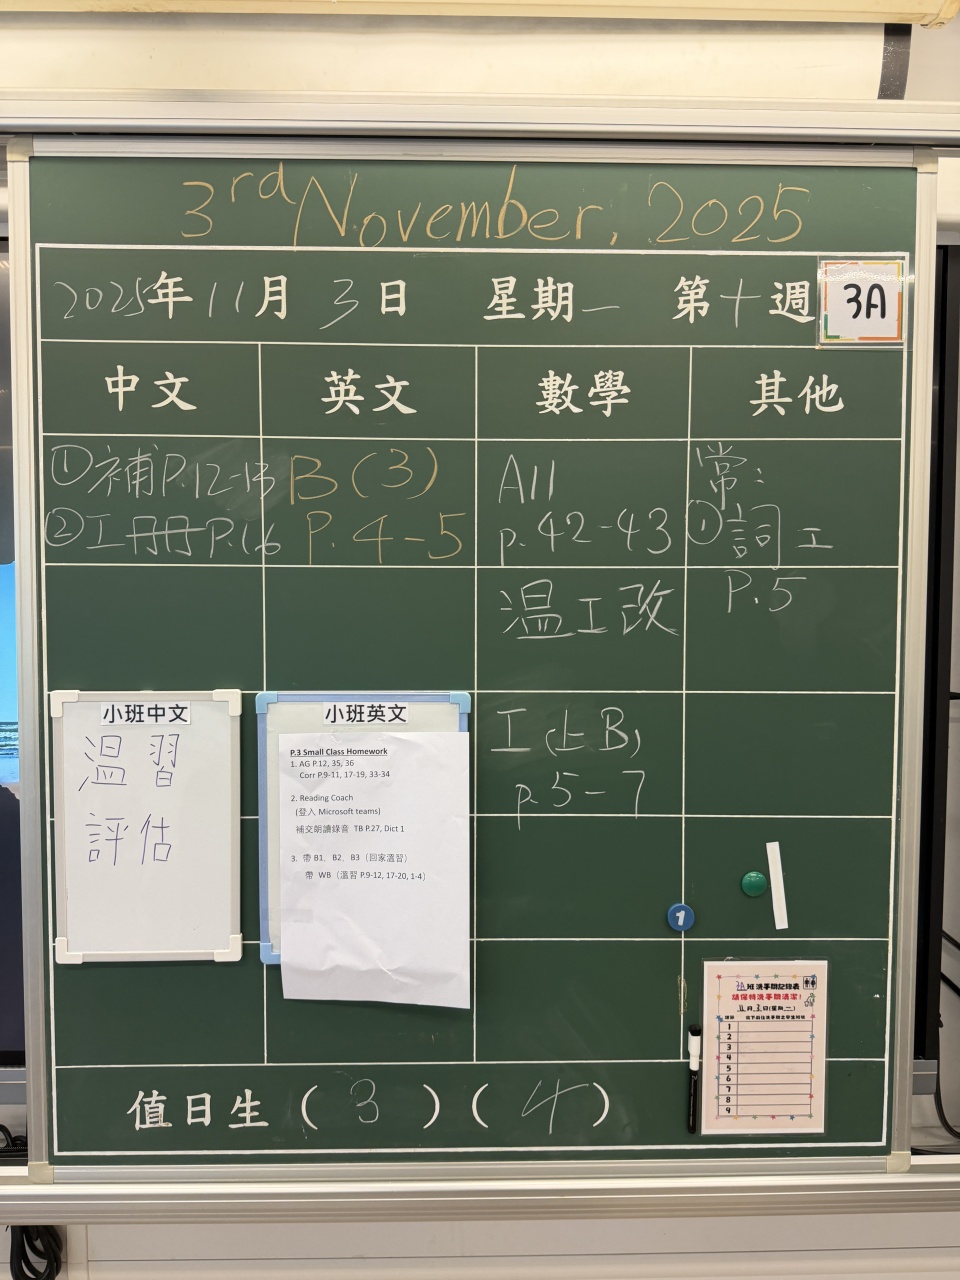 3rd November, 2025
2025年11月3日 星期一 第十週
3A
中文 英文 數學 其他
①補P.12-13
②工冊P.16
B(3)
P.4-5
All
p.42-43
温工改
工(上B)
p.5-7
常:
①詞工
P.5
小班中文
温習
評估
小班英文
P.3 Small Class Homework
1. AG P.12, 35, 36
Corr P.9-11, 17-19, 33-34
2. Reading Coach
(登入 Microsoft teams)
補交朗讀錄音 TB P.27, Dict 1
3. 帶 B1, B2, B3（回家溫習）
帶 WB（溫習 P.9-12, 17-20, 1-4）
1
3A班洗手間記錄表
請保持洗手間清潔！
11月3日(星期一)
1
2
3
4
5
6
7
8
9
值日生（3）（4）